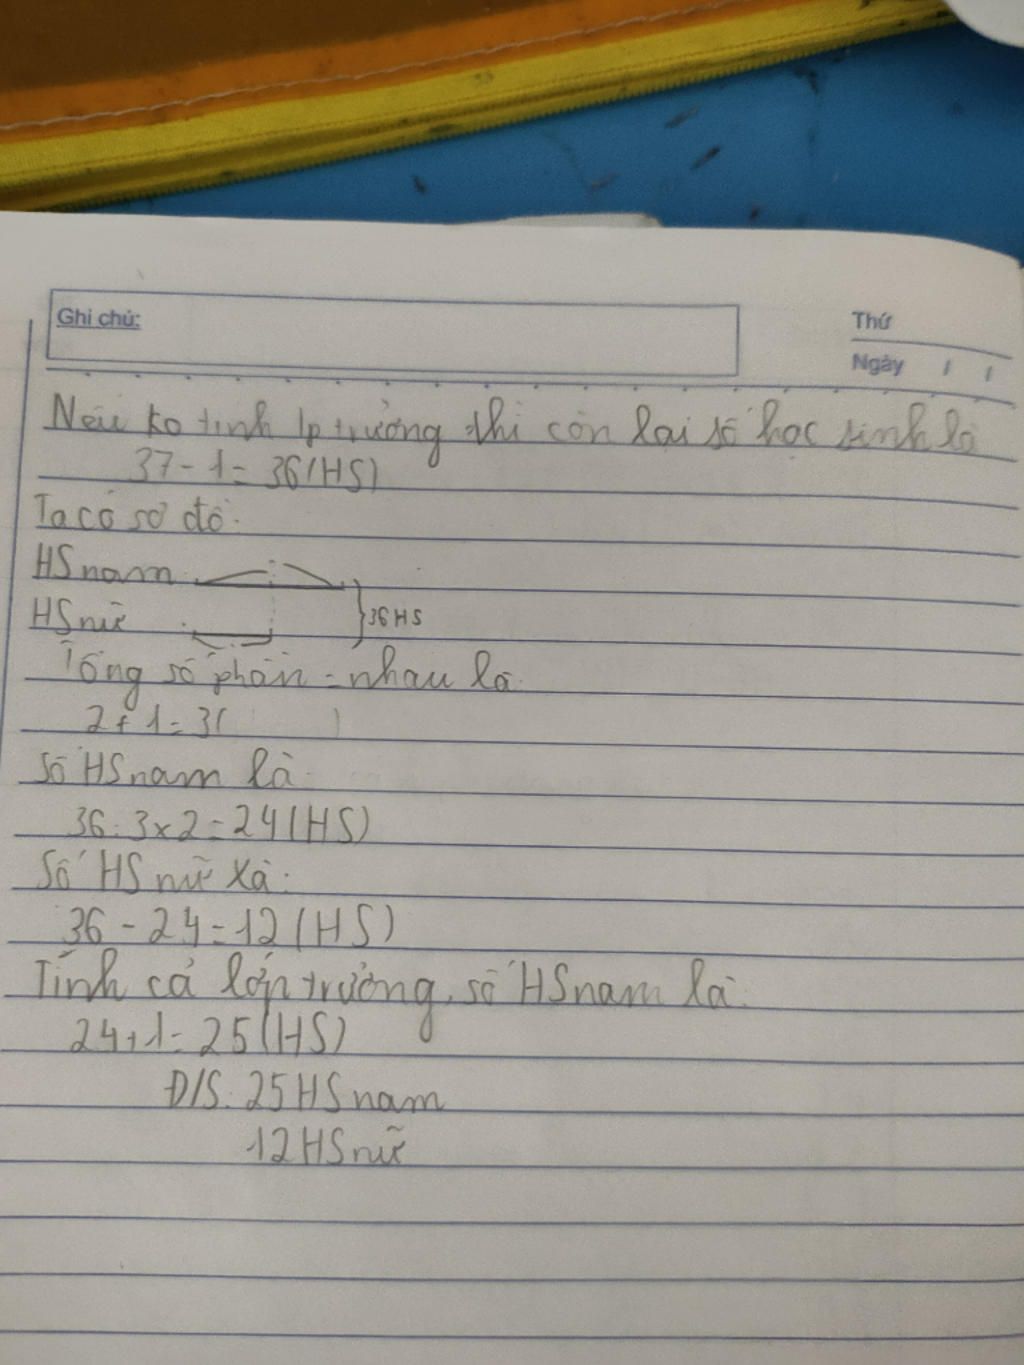 Ghi chú:
Thứ
Ngày / /
Nếu ko tính lp trưởng thì còn lại số học sinh là
37-1=36(HS)
Ta có sơ đồ:
HS nam:
HS nữ:
36 HS
Tổng số phần = nhau là:
2+1=3( )
Số HS nam là:
36:3x2=24(HS)
Số HS nữ là:
36-24=12(HS)
Tính cả lớp trưởng, số HS nam là:
24+1=25(HS)
Đ/S: 25 HS nam
12 HS nữ